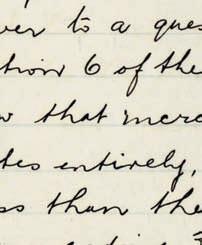 ver to a ques
tion 6 of the
w that mere
tes entirely,
ss than the